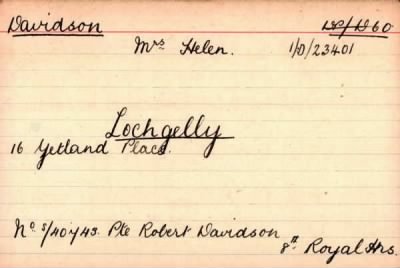 Davidson
Mrs Helen. 1/D/23401
Lochgelly
16 Yetland Place.
No S/40743. Pte Robert Davidson
8th Royal Hrs.